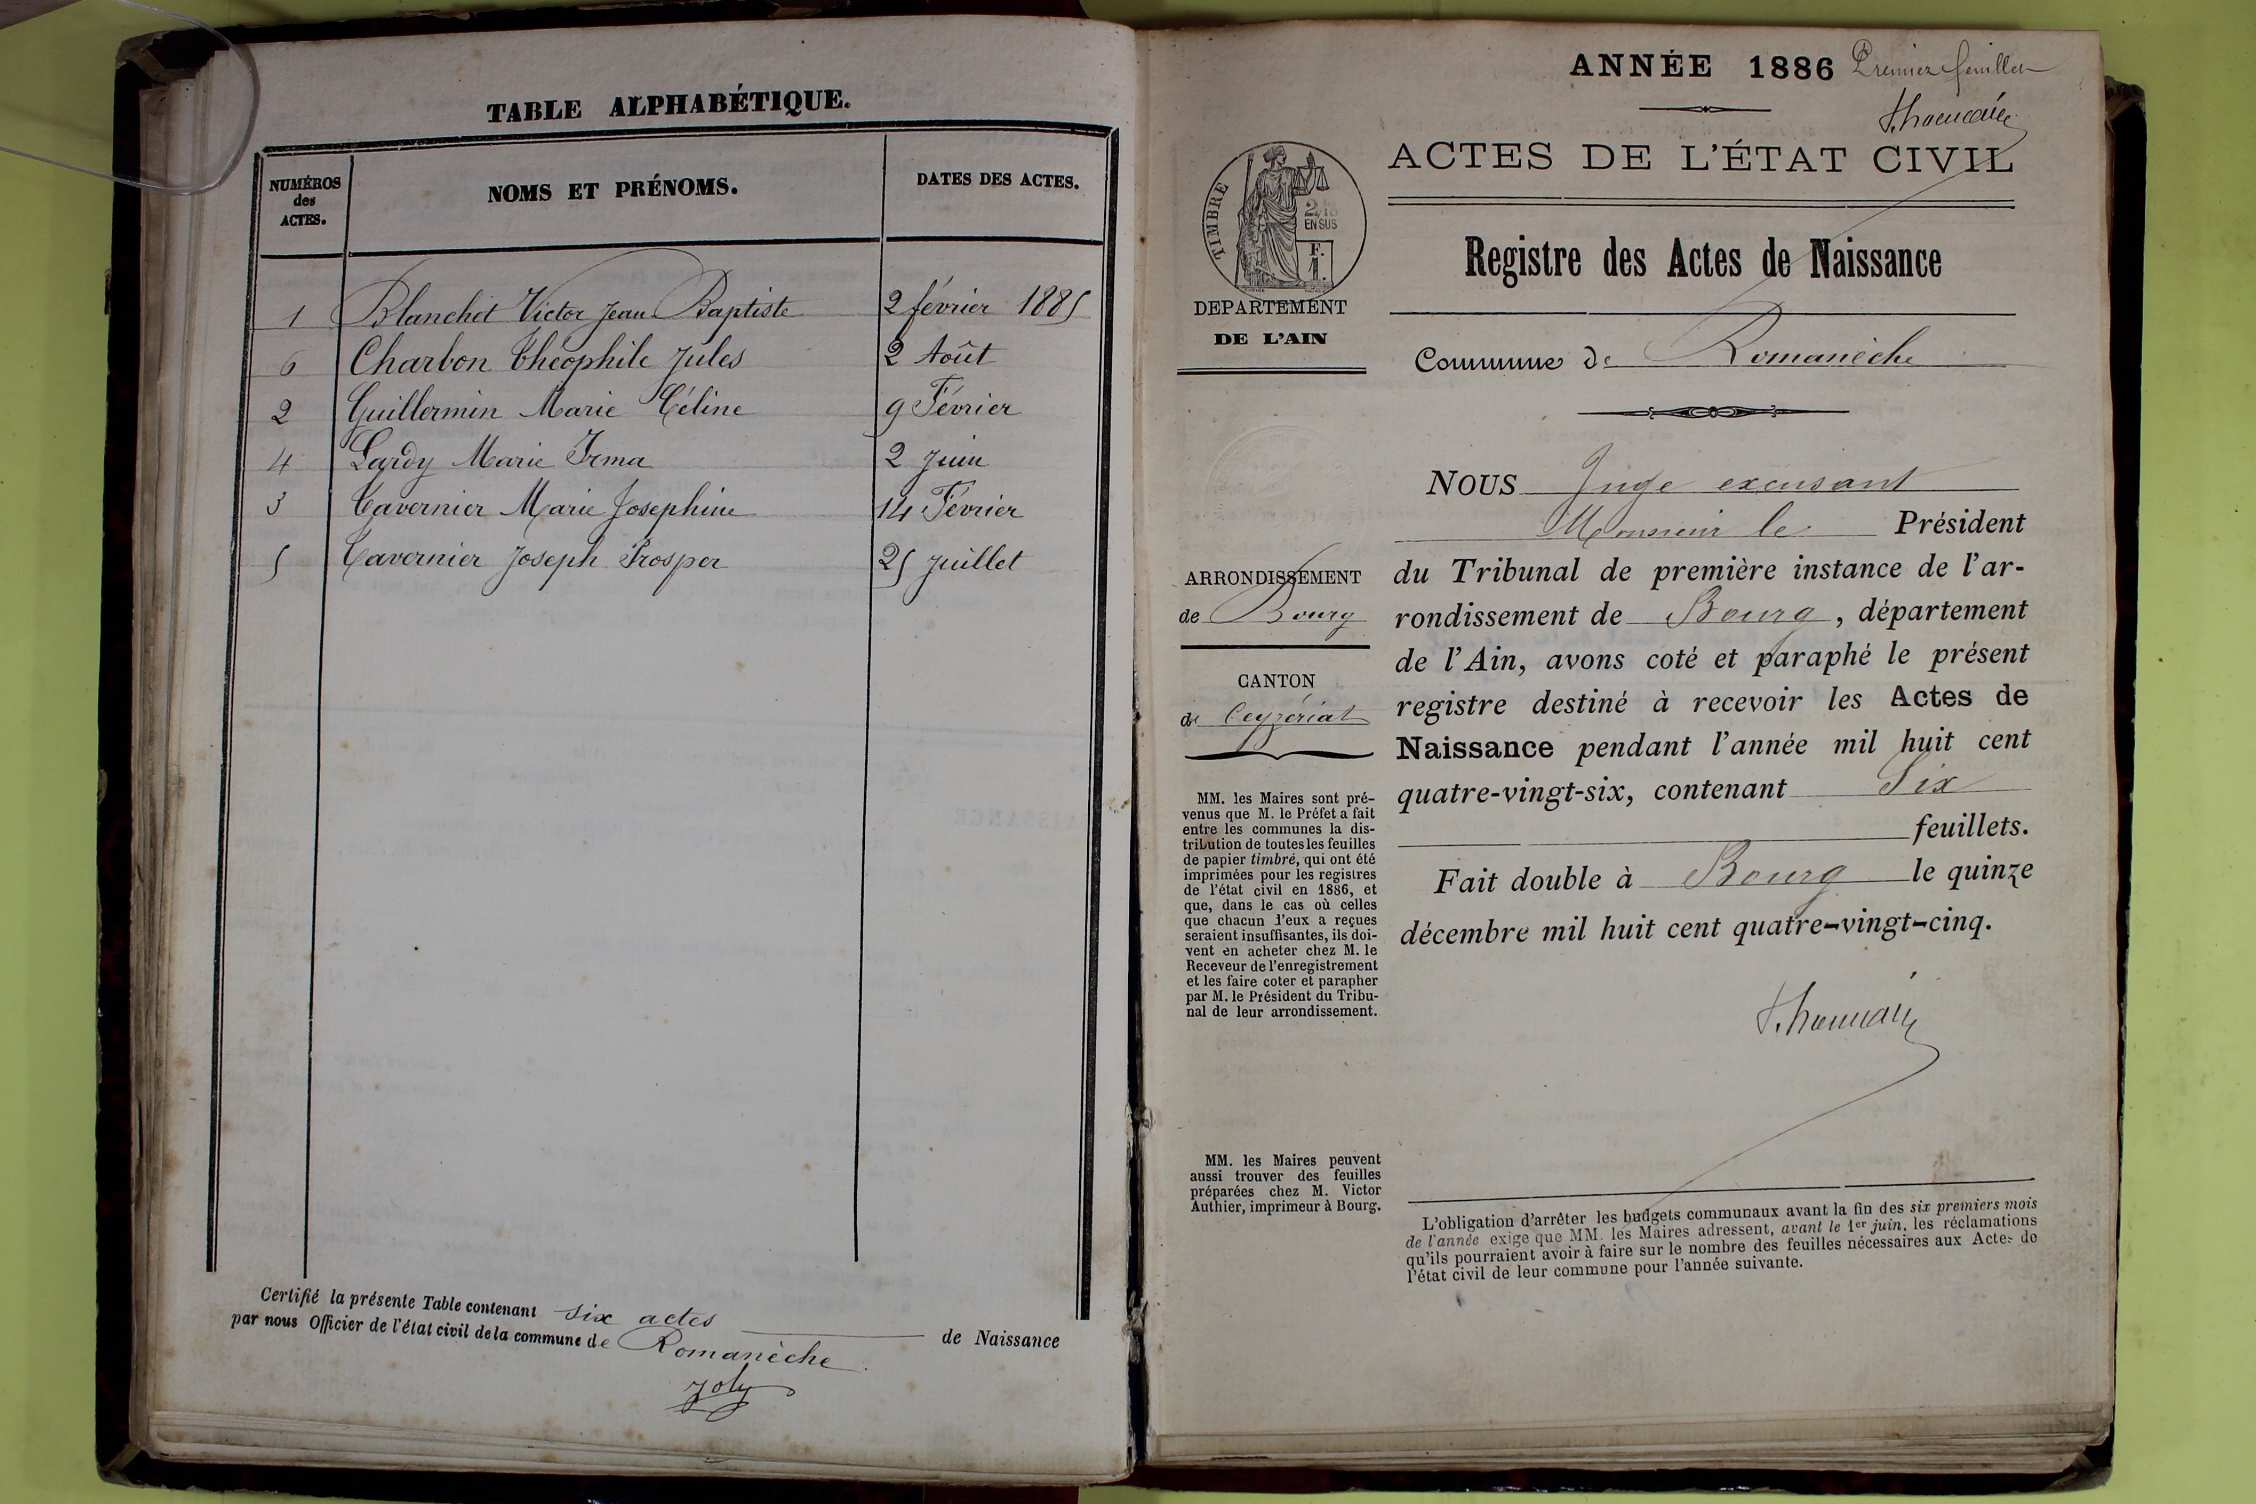 TABLE ALPHABÉTIQUE.
NUMÉROS
des
ACTES.
NOMS ET PRÉNOMS.
DATES DES ACTES.
1 Blanchet Victor Jean Baptiste 2 février 1885
6 Charbon Théophile Jules 2 Août
2 Guillermin Marie Céline 9 Février
4 Lardy Marie Irma 2 Juin
3 Tavernier Marie Josephine 14 Février
5 Tavernier Joseph Prosper 25 Juillet
Certifié la présente Table contenant six actes de Naissance
par nous Officier de l'état civil de la commune de Romanèche
Joly
ANNÉE 1886 Premier feuillet
ACTES DE L'ÉTAT CIVIL
TIMBRE
2/10
EN SUS
F.
1.
DEPARTEMENT
DE L'AIN
Registre des Actes de Naissance
Commune de Romanèche
ARRONDISSEMENT
de Bourg
CANTON
de Ceyzériat
MM. les Maires sont pré-
venus que M. le Préfet a fait
entre les communes la dis-
tribution de toutes les feuilles
de papier timbré, qui ont été
imprimées pour les registres
de l'état civil en 1886, et
que, dans le cas où celles
que chacun d'eux a reçues
seraient insuffisantes, ils doi-
vent en acheter chez M. le
Receveur de l'enregistrement
et les faire coter et parapher
par M. le Président du Tribu-
nal de leur arrondissement.
MM. les Maires peuvent
aussi trouver des feuilles
préparées chez M. Victor
Authier, imprimeur à Bourg.
NOUS Juge excusant
Monsieur le Président
du Tribunal de première instance de l'ar-
rondissement de Bourg, département
de l'Ain, avons coté et paraphé le présent
registre destiné à recevoir les Actes de
Naissance pendant l'année mil huit cent
quatre-vingt-six, contenant Six
feuillets.
Fait double à Bourg le quinze
décembre mil huit cent quatre-vingt-cinq.
L'obligation d'arrêter les budgets communaux avant la fin des six premiers mois
de l'année exige que MM. les Maires adressent, avant le 1er juin, les réclamations
qu'ils pourraient avoir à faire sur le nombre des feuilles nécessaires aux Actes de
l'état civil de leur commune pour l'année suivante.